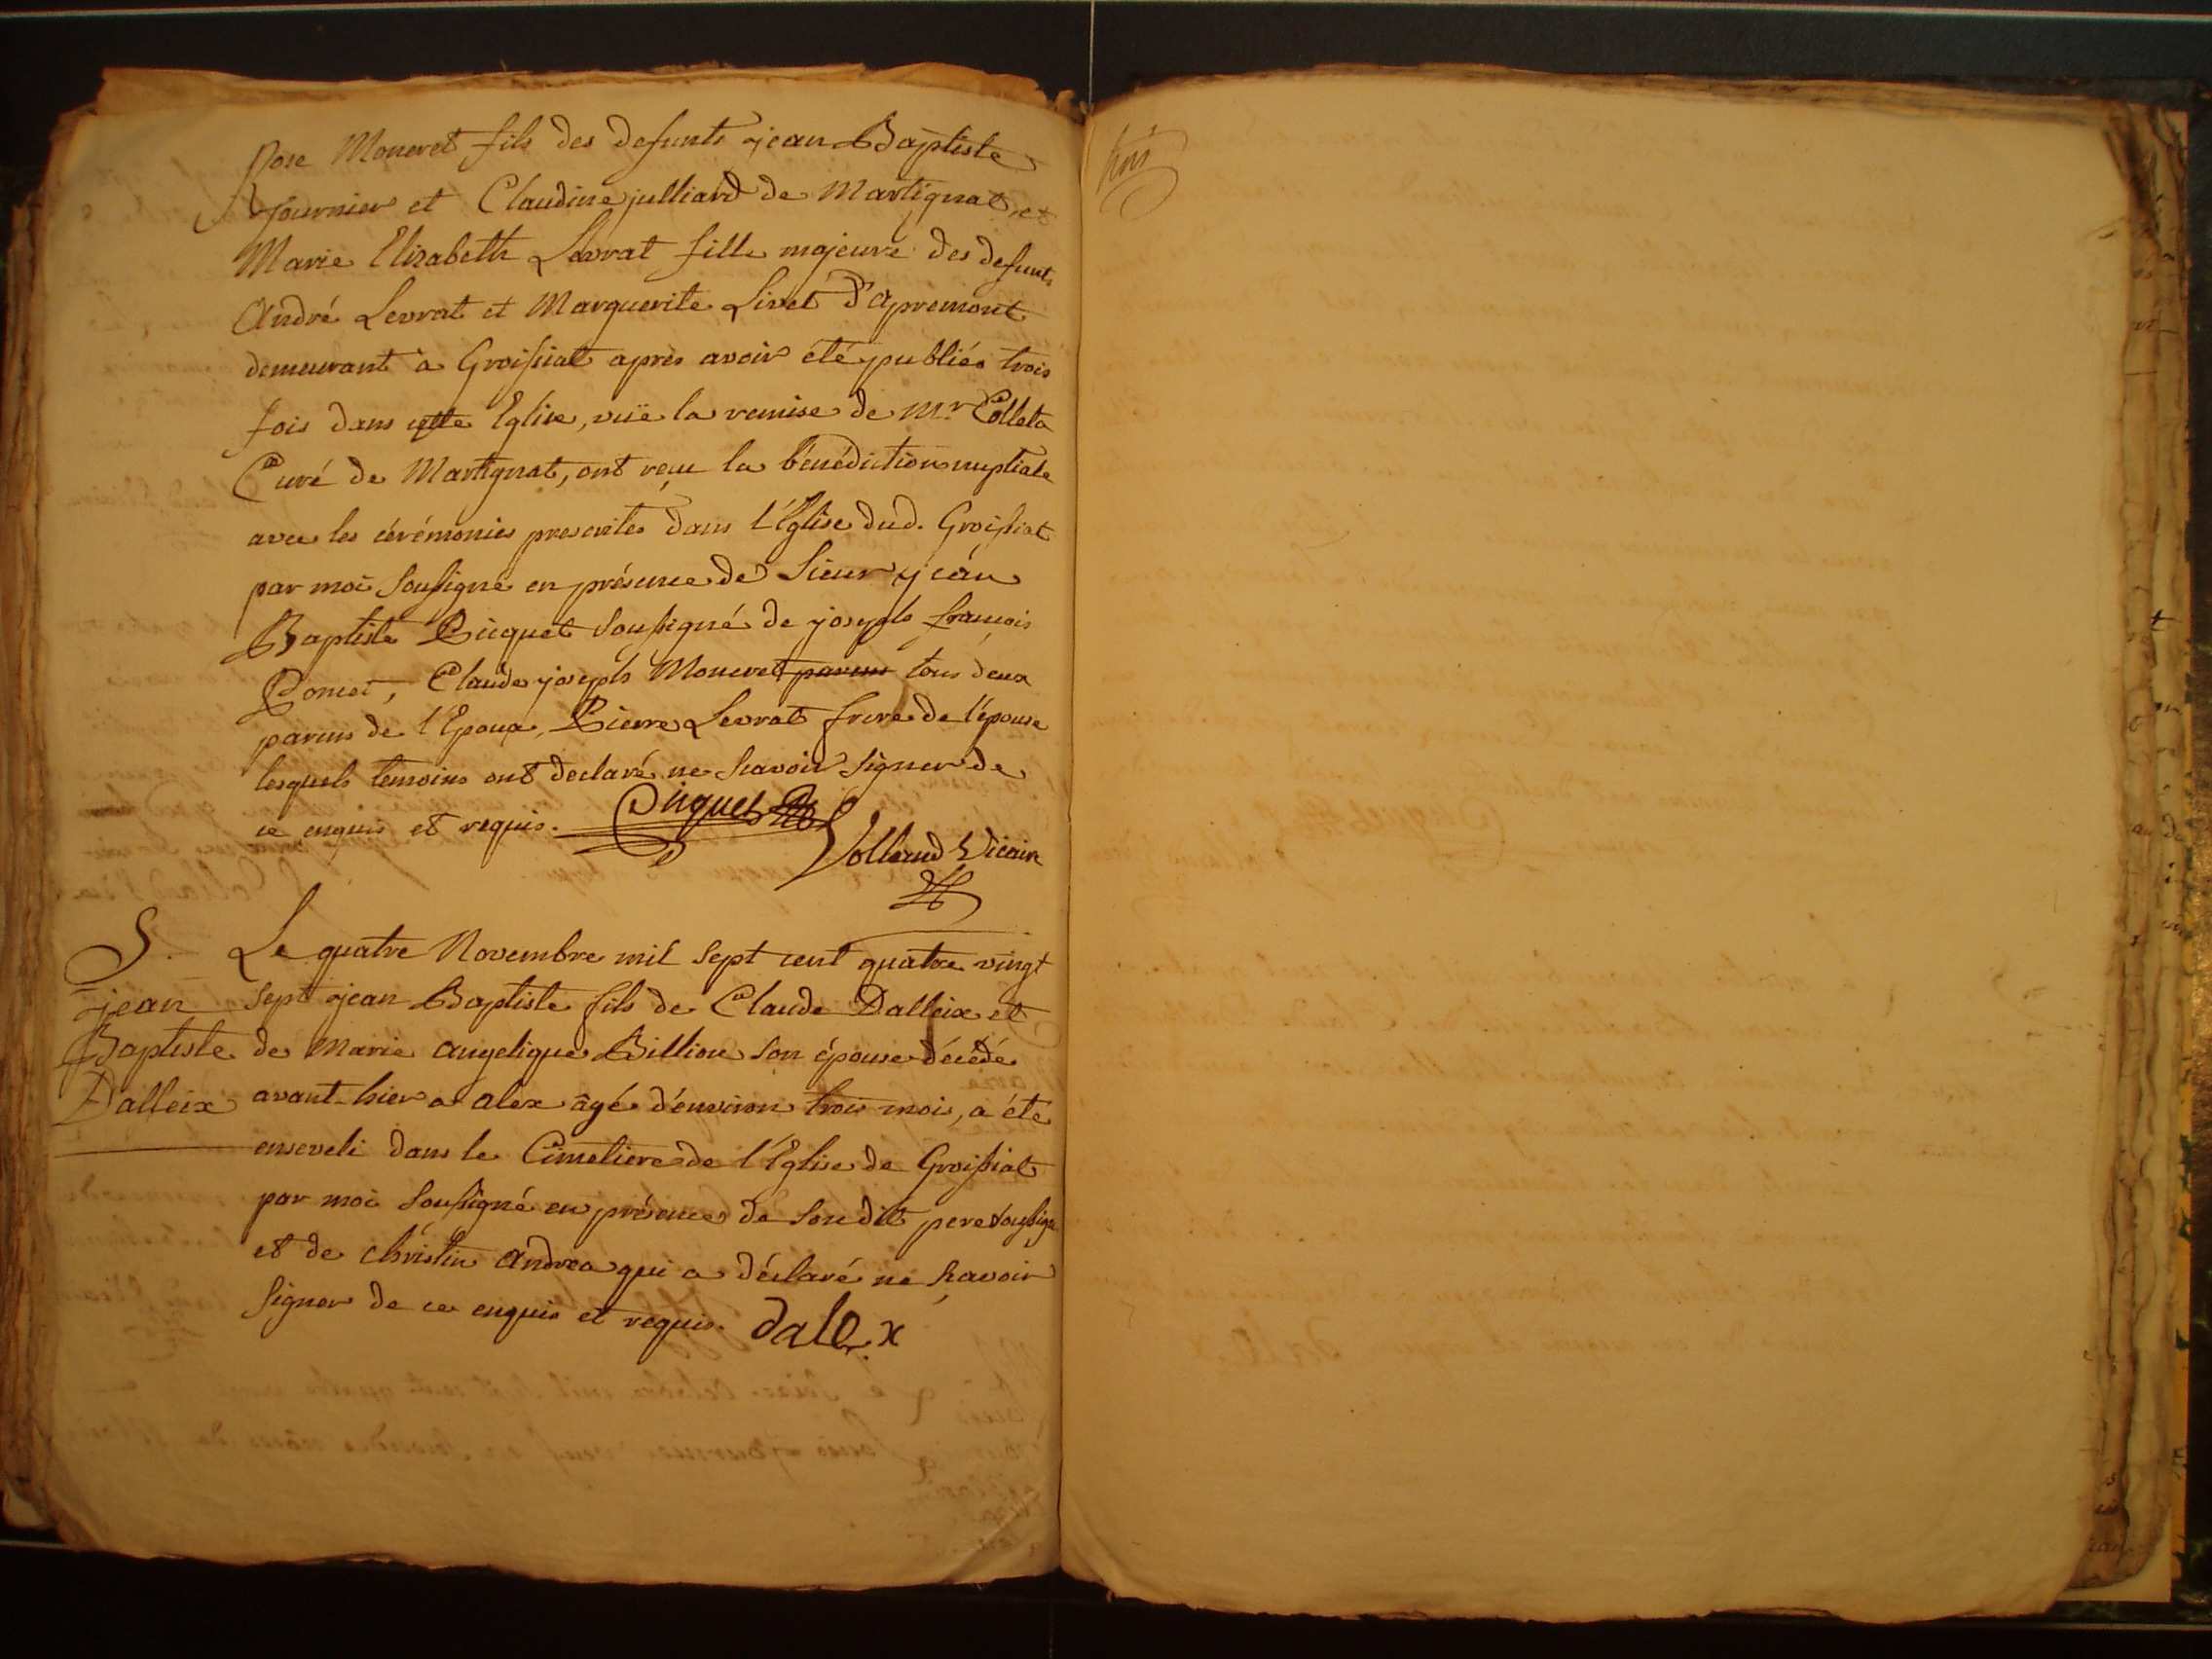 Rose Moneret fils des defunts jean Baptiste
fournier et Claudine julliard de Martignat, et
Marie Elisabeth Levrat fille majeure des defunts
André Levrat et Marguerite Livet d'Apremont
demeurant a Groissiat après avoir été publiés trois
fois dans cette Eglise, vüe la remise de Mr. Colleta
Curé de Martignat, ont reçu la bénédiction nuptiale
avec les cérémonies prescrites dans l'Eglise dud. Groissiat
par moi soussigné en présence de Sieur jean
Baptiste Picquet soussigné de joseph françois
Poncet, Claude joseph Moneret parens tous deux
parens de l'Epoux, Pierre Levrat frere de l'épouse
lesquels temoins ont declaré ne sçavoir signer de
ce enquis et requis. Picquet
Volland Vicaire
S. Le quatre Novembre mil sept cent quatre vingt
jean sept jean Baptiste fils de Claude Dalleix et
Baptiste de Marie angelique Billion son épouse décédé
Dalleix avant-hier a alex âgé d'environ trois mois, a été
enseveli dans le Cimetiere de l'Eglise de Groissiat
par moi soussigné en présence de son dit pere soussigé
et de christin andrea qui a déclaré ne sçavoir
signer de ce enquis et requis. dalex